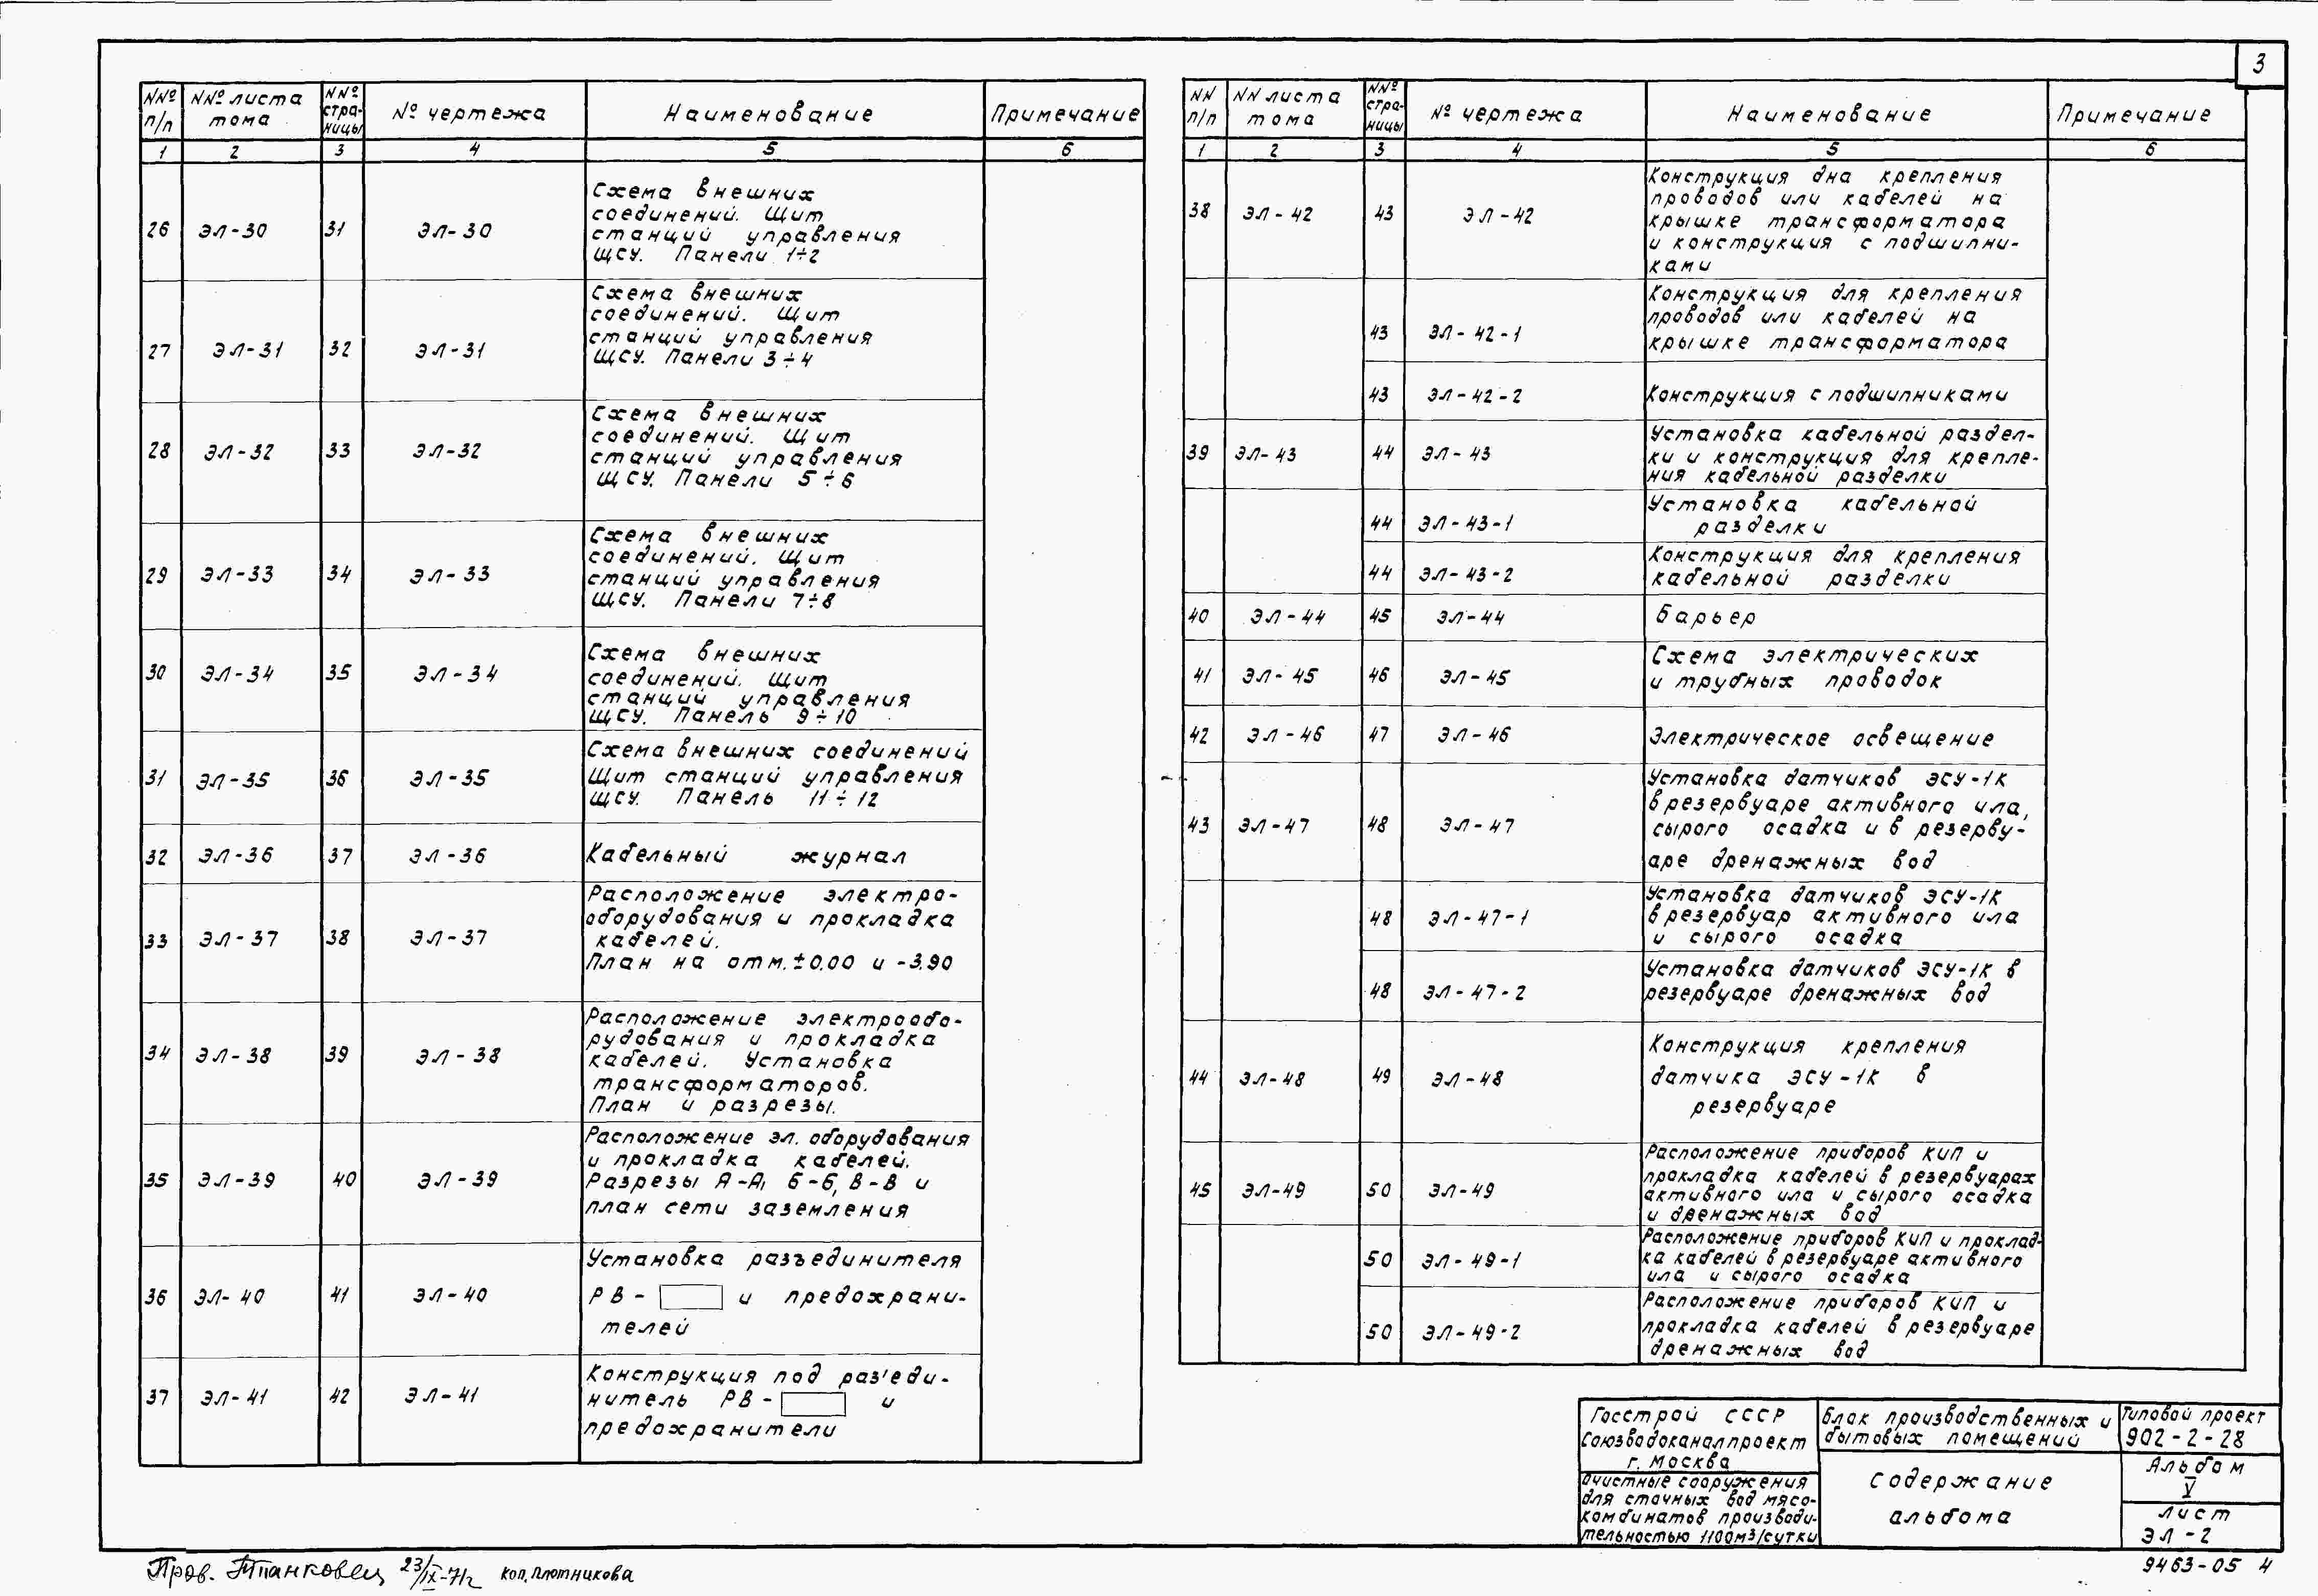 3
NNº п/п
NNº листа тома
NNº страницы
Nº чертежа
Наименование
Примечание
1 2 3 4 5 6
26 ЭЛ-30 31 ЭЛ-30
Схема внешних
соединений. Щит
станций управления
ЩСУ. Панели 1÷2
27 ЭЛ-31 32 ЭЛ-31
Схема внешних
соединений. Щит
станций управления
ЩСУ. Панели 3÷4
28 ЭЛ-32 33 ЭЛ-32
Схема внешних
соединений. Щит
станций управления
ЩСУ. Панели 5÷6
29 ЭЛ-33 34 ЭЛ-33
Схема внешних
соединений. Щит
станций управления
ЩСУ. Панели 7÷8
30 ЭЛ-34 35 ЭЛ-34
Схема внешних
соединений. Щит
станций управления
ЩСУ. Панель 9÷10
31 ЭЛ-35 36 ЭЛ-35
Схема внешних соединений
Щит станций управления
ЩСУ. Панель 11÷12
32 ЭЛ-36 37 ЭЛ-36
Кабельный журнал
33 ЭЛ-37 38 ЭЛ-37
Расположение электро-
оборудования и прокладка
кабелей.
План на отм. ±0.00 и -3.90
34 ЭЛ-38 39 ЭЛ-38
Расположение электрообо-
рудования и прокладка
кабелей. Установка
трансформаторов.
План и разрезы.
35 ЭЛ-39 40 ЭЛ-39
Расположение эл. оборудования
и прокладка кабелей.
Разрезы А-А, Б-Б, В-В и
план сети заземления
36 ЭЛ-40 41 ЭЛ-40
Установка разъединителя
РВ- и предохрани-
телей
37 ЭЛ-41 42 ЭЛ-41
Конструкция под раз'еди-
нитель РВ- и
предохранители
NN п/п
NN листа тома
NNº страницы
Nº чертежа
Наименование
Примечание
1 2 3 4 5 6
38 ЭЛ-42 43 ЭЛ-42
Конструкция дна крепления
проводов или кабелей на
крышке трансформатора
и конструкция с подшипни-
ками
43 ЭЛ-42-1
Конструкция для крепления
проводов или кабелей на
крышке трансформатора
43 ЭЛ-42-2
Конструкция с подшипниками
39 ЭЛ-43 44 ЭЛ-43
Установка кабельной раздел-
ки и конструкция для крепле-
ния кабельной разделки
44 ЭЛ-43-1
Установка кабельной
разделки
44 ЭЛ-43-2
Конструкция для крепления
кабельной разделки
40 ЭЛ-44 45 ЭЛ-44
Барьер
41 ЭЛ-45 46 ЭЛ-45
Схема электрических
и трубных проводок
42 ЭЛ-46 47 ЭЛ-46
Электрическое освещение
43 ЭЛ-47 48 ЭЛ-47
Установка датчиков ЭСУ-1К
в резервуаре активного ила,
сырого осадка и в резерву-
аре дренажных вод
48 ЭЛ-47-1
Установка датчиков ЭСУ-1К
в резервуар активного ила
и сырого осадка
48 ЭЛ-47-2
Установка датчиков ЭСУ-1К в
резервуаре дренажных вод
44 ЭЛ-48 49 ЭЛ-48
Конструкция крепления
датчика ЭСУ-1К в
резервуаре
45 ЭЛ-49 50 ЭЛ-49
Расположение приборов КИП и
прокладка кабелей в резервуарах
активного ила и сырого осадка
и дренажных вод
50 ЭЛ-49-1
Расположение приборов КИП и проклад-
ка кабелей в резервуаре активного
ила и сырого осадка
50 ЭЛ-49-2
Расположение приборов КИП и
прокладка кабелей в резервуаре
дренажных вод
Госстрой СССР
Союзводоканалпроект
г. Москва
Очистные сооружения
для сточных вод мясо-
комбинатов производи-
тельностью 1100м3/сутки
Блок производственных и
бытовых помещений
Содержание
альбома
Типовой проект
902-2-28
Альбом
V
Лист
ЭЛ-2
Пров. 23/IX-71г коп. Плотникова
9463-05 4